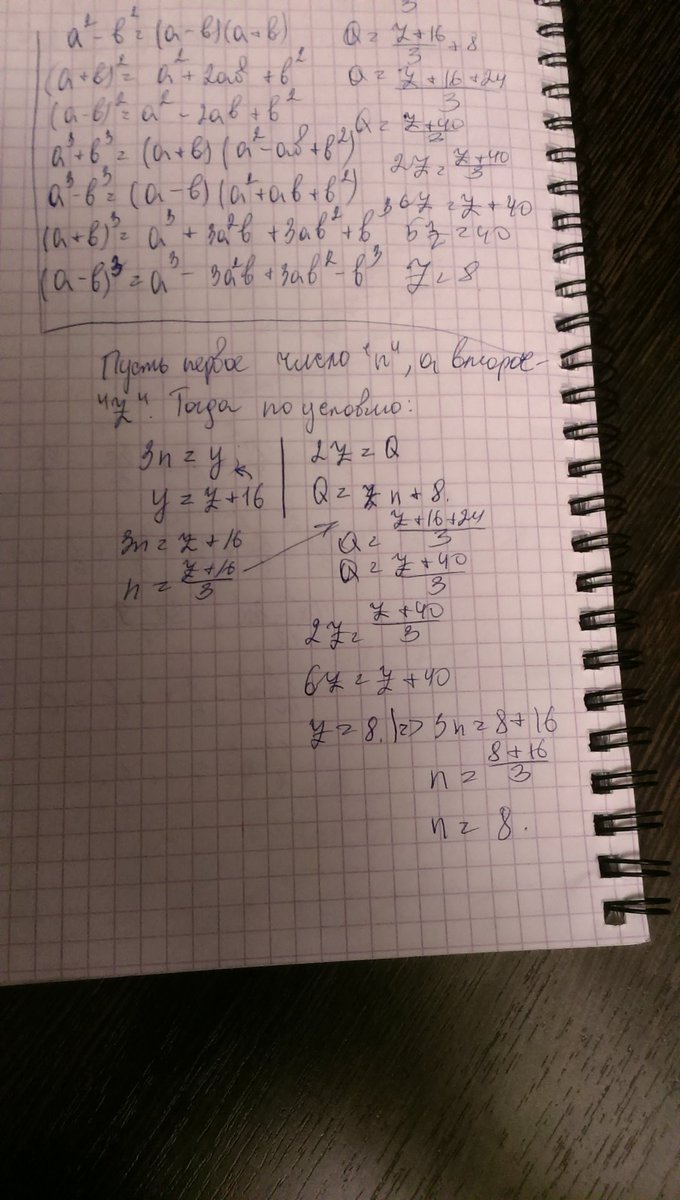 a² - b² = (a-b)(a+b)
(a+b)² = a² + 2ab + b²
(a-b)² = a² - 2ab + b²
a³ + b³ = (a+b)(a² - ab + b²)
a³ - b³ = (a-b)(a² + ab + b²)
(a+b)³ = a³ + 3a²b + 3ab² + b³
(a-b)³ = a³ - 3a²b + 3ab² - b³
3
Q = (z+16)/3 + 8
Q = (z+16+24)/3
Q = (z+40)/3
2z = (z+40)/3
6z = z + 40
5z = 40
z = 8
Пусть первое число "n", а второе -
"z". Тогда по условию:
3n = y
y = z + 16
3n = z + 16
n = (z+16)/3
2z = Q
Q = n + 8.
Q = (z+16+24)/3
Q = (z+40)/3
2z = (z+40)/3
6z = z + 40
z = 8. |=> 3n = 8 + 16
n = (8+16)/3
n = 8.